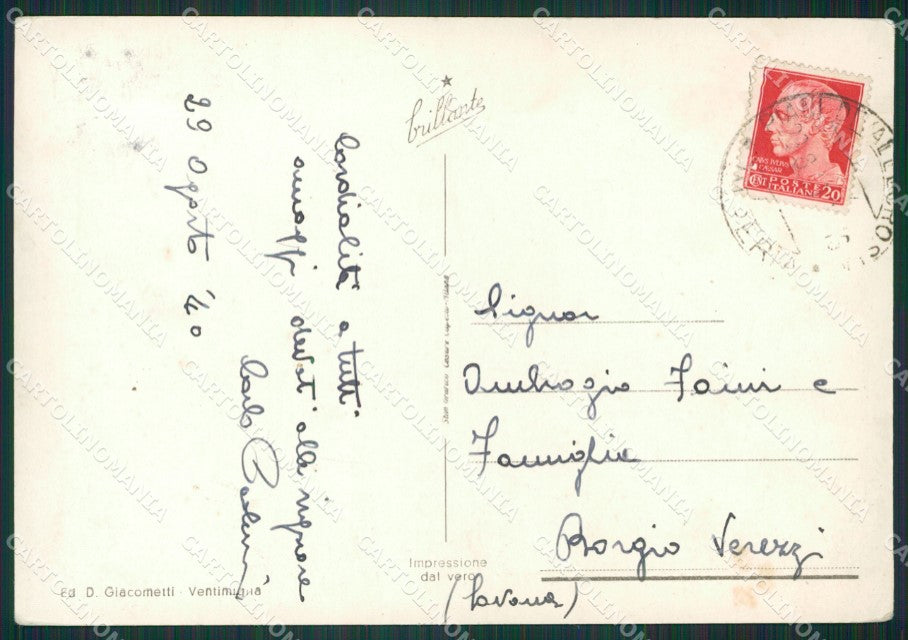 29 Agosto '40
Cordialità a tutti
omaggi devoti alle signore
Carlo
brillante
CAIVS IVLIVS
CAESAR
POSTE
CENT ITALIANE 20
Signor
Ambrogio Faini e
Famiglia
Borgio Verezzi
(Savona)
Impressione
dal vero
Ed. D. Giacometti - Ventimiglia
CARTOLINOMANIA